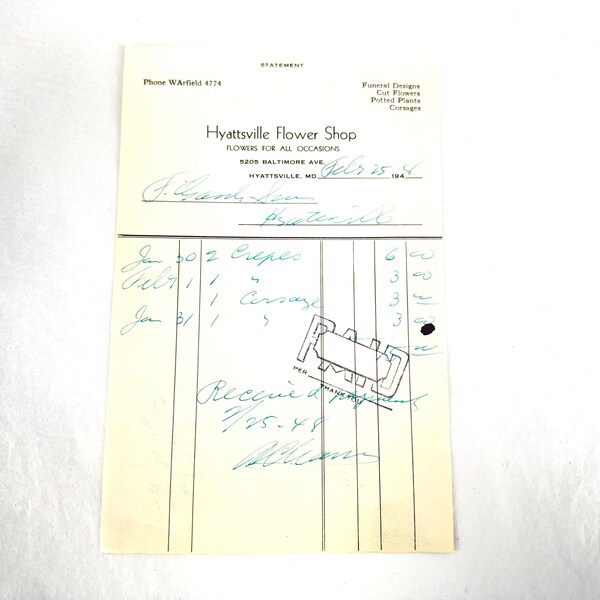 STATEMENT
Phone WArfield 4774
Funeral Designs
Cut Flowers
Potted Plants
Corsages
Hyattsville Flower Shop
FLOWERS FOR ALL OCCASIONS
5205 BALTIMORE AVE.
HYATTSVILLE, MD. Feb 25 - 1948
F. Sons
Hyattsville
Jan 30 2 Crepes 6 00
Feb 1 1 " 3 00
1 Corsage 3 00
Jan 31 1 " 3 00
PAID
PER
THANK YOU
Received payment
2/25-48